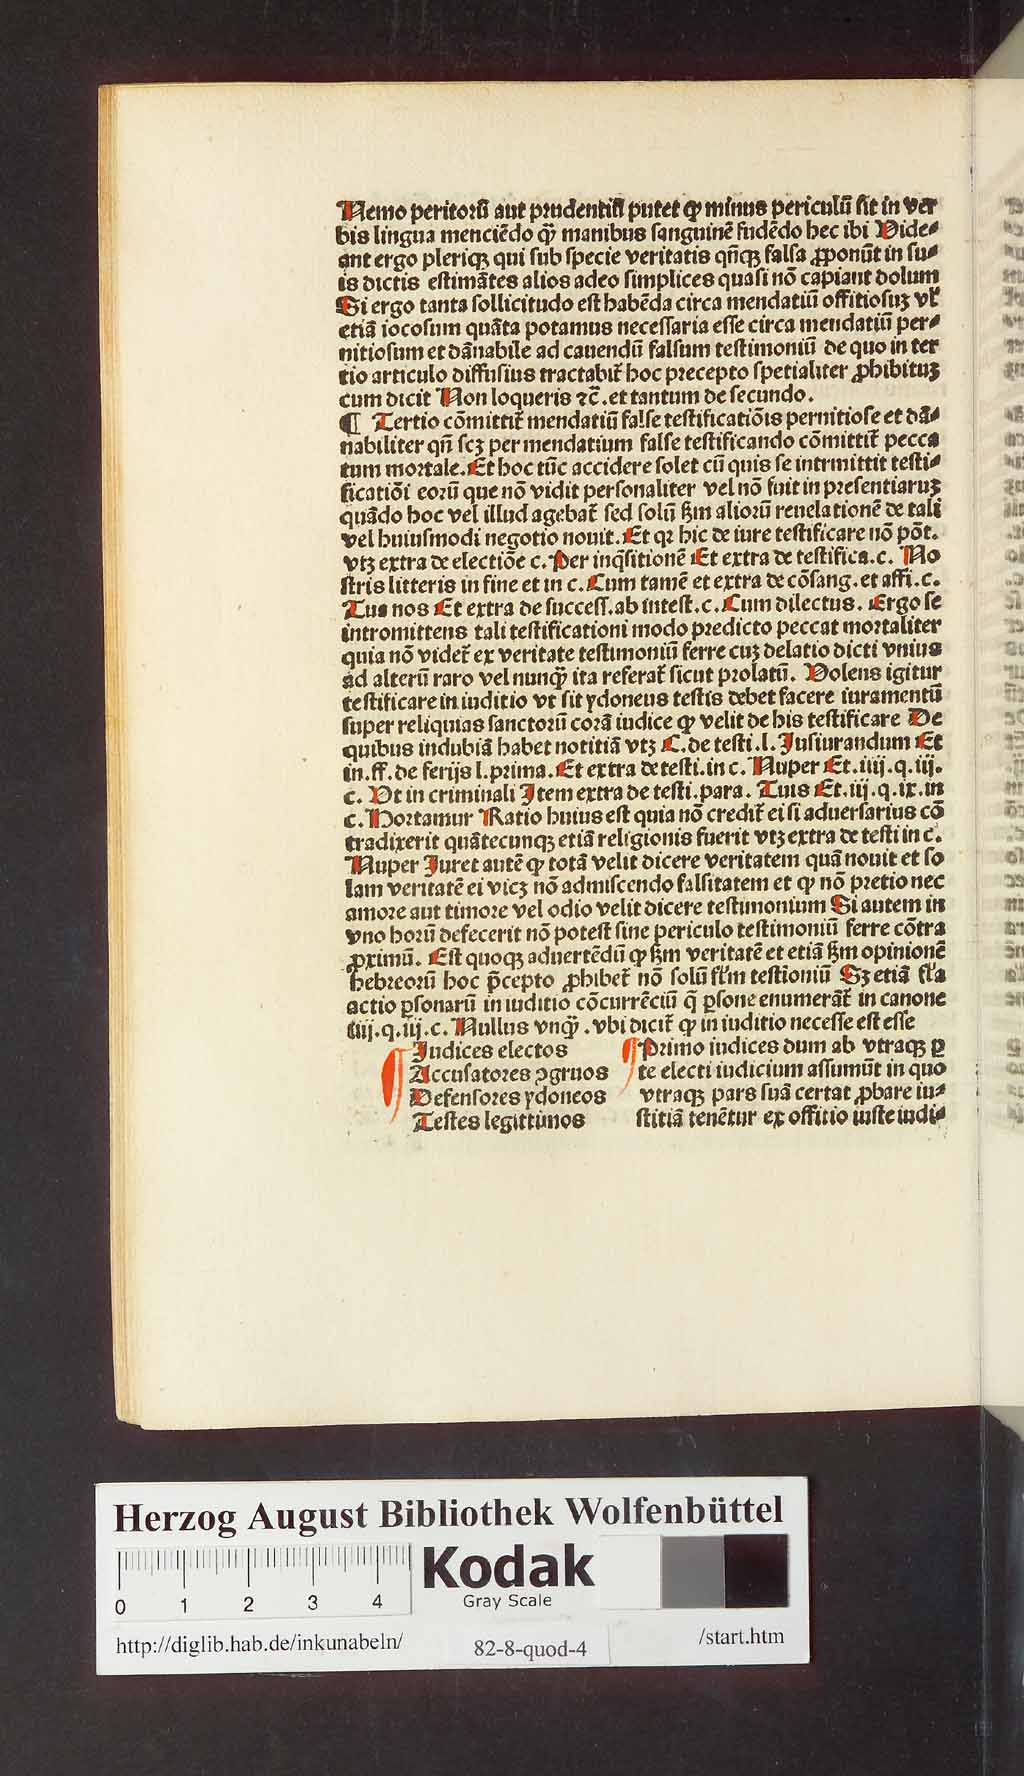 Nemo peritorū aut prudentiū putet ꝙ minus periculū sit in ver
bis lingua menciēdo qͫ manibus sanguinē fudēdo hec ibi Vide⸗
ant ergo pleriqꝫ qui sub specie veritatis qn̄qꝫ falsa ꝓponūt in su⸗
is dictis estimātes alios adeo simplices quasi nō capiant dolum
Si ergo tanta sollicitudo est habēda circa mendatiū offitiosuꝫ vl̄
etiā iocosum quāta potamus necessaria esse circa mendatiū per⸗
nitiosum et dānabile ad cauendū falsum testimoniū de quo in ter
tio articulo diffusius tractabit̄ hoc precepto spetialiter ꝓhibituꝫ
cum dicit Non loqueris ⁊c̄ .et tantum de secundo.
¶ Tertio cōmittit̄ mendatiū false testificatiōis pernitiose et dā⸗
nabiliter qn̄ scꝫ per mendatium false testificando cōmittit̄ pecca
tum mortale. Et hoc tūc accidere solet cū quis se intrmittit testi⸗
ficatiōi eorū que nō vidit personaliter vel nō fuit in presentiaruꝫ
quādo hoc vel illud agebat̄ sed solū ẜm aliorū reuelationē de tali
vel huiusmodi negotio nouit. Et qꝛ hic de iure testificare nō pōt.
vtꝫ extra de electiōe c. Per inq̇sitionē Et extra de testifica.c. No
stris litteris in fine et in c. Cum tamē et extra de cōsang. et affi.c.
Tua nos Et extra de success.ab intest.c. Cum dilectus. Ergo se
intromittens tali testificationi modo predicto peccat mortaliter
quia nō videt̄ ex veritate testimoniū ferre cuꝫ delatio dicti vnius
ad alterū raro vel nunqͫ ita referat̄ sicut prolatū. Volens igitur
testificare in iuditio vt sit ydoneus testis debet facere iuramentū
super reliquias sanctorū corā iudice ꝙ velit de his testificare De
quibus indubiā habet notitiā vtꝫ C. de testi.l. Iusiurandum Et
in.ff.de ferijs l.prima. Et extra de testi.in c. Nuper Et.iiij.q.iij.
c. Vt in criminali Item extra de testi.para. Tuis Et.iij.q.ix.in
c. Hortamur Ratio huius est quia nō credit̄ ei si aduersarius cō
tradixerit quātecunqꝫ etiā religionis fuerit vtꝫ extra de testi in c.
Nuper Iuret autē ꝙ totā velit dicere veritatem quā nouit et so
lam veritatē ei vicꝫ nō admiscendo falsitatem et ꝙ nō pretio nec
amore aut timore vel odio velit dicere testimonium Si autem in
vno horū defecerit nō potest sine periculo testimoniū ferre cōtra
ꝓximū. Est quoqꝫ aduertēdū ꝙ ẜm veritatē et etiā ẜm opinionē
hebreorū hoc p̄cepto ꝓhibet̄ nō solū fl̄m testioniū Sꝫ etiā fl̄a
actio ꝑsonarū in iuditio cōcurrēciū q̄ ꝑsone enumerāt̄ in canone
iiij.q.iij.c. Nullus vnqͫ .vbi dicit̄ ꝙ in iuditio necesse est esse
Iudices electos
Accusatores ꝯgruos
Defensores ydoneos
Testes legittimos
Primo iudices dum ab vtraqꝫ ꝑ
te electi iudicium assumūt in quo
vtraqꝫ pars suā certat ꝓbare iu⸗
stitiā tenētur ex offitio iuste iudi⸗
Herzog August Bibliothek Wolfenbüttel
0 1 2 3 4
Kodak
Gray Scale
http://diglib.hab.de/inkunabeln/
82-8-quod-4
/start.htm